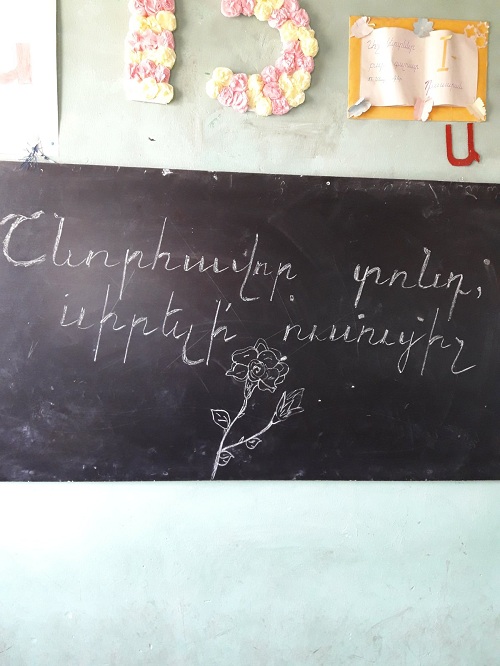 Շնորհավոր տոնդ,
սիրելի՛ ուսուցիչ